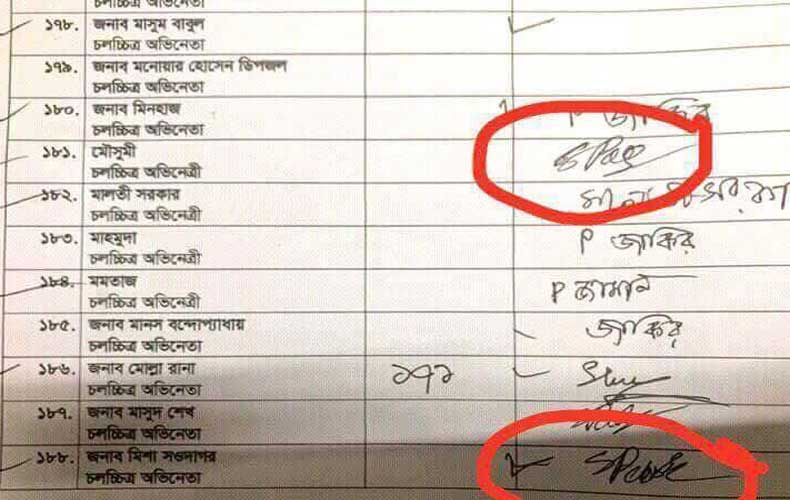 চলচ্চিত্র অভিনেতা
১৭৮. জনাব মাসুম বাবুল
চলচ্চিত্র অভিনেতা
১৭৯. জনাব মনোয়ার হোসেন ডিপজল
চলচ্চিত্র অভিনেতা
১৮০. জনাব মিনহাজ P জাকির
চলচ্চিত্র অভিনেতা
১৮১. মৌসুমী
চলচ্চিত্র অভিনেত্রী
১৮২. মালতী সরকার
চলচ্চিত্র অভিনেত্রী
১৮৩. মাহমুদা P জাকির
চলচ্চিত্র অভিনেত্রী
১৮৪. মমতাজ P জামান
চলচ্চিত্র অভিনেত্রী
১৮৫. জনাব মানস বন্দোপাধ্যায় জাকির
চলচ্চিত্র অভিনেতা
১৮৬. জনাব মোল্লা রানা ১৭১
চলচ্চিত্র অভিনেতা
১৮৭. জনাব মাসুদ শেখ
চলচ্চিত্র অভিনেতা
১৮৮. জনাব মিশা সওদাগর
চলচ্চিত্র অভিনেতা